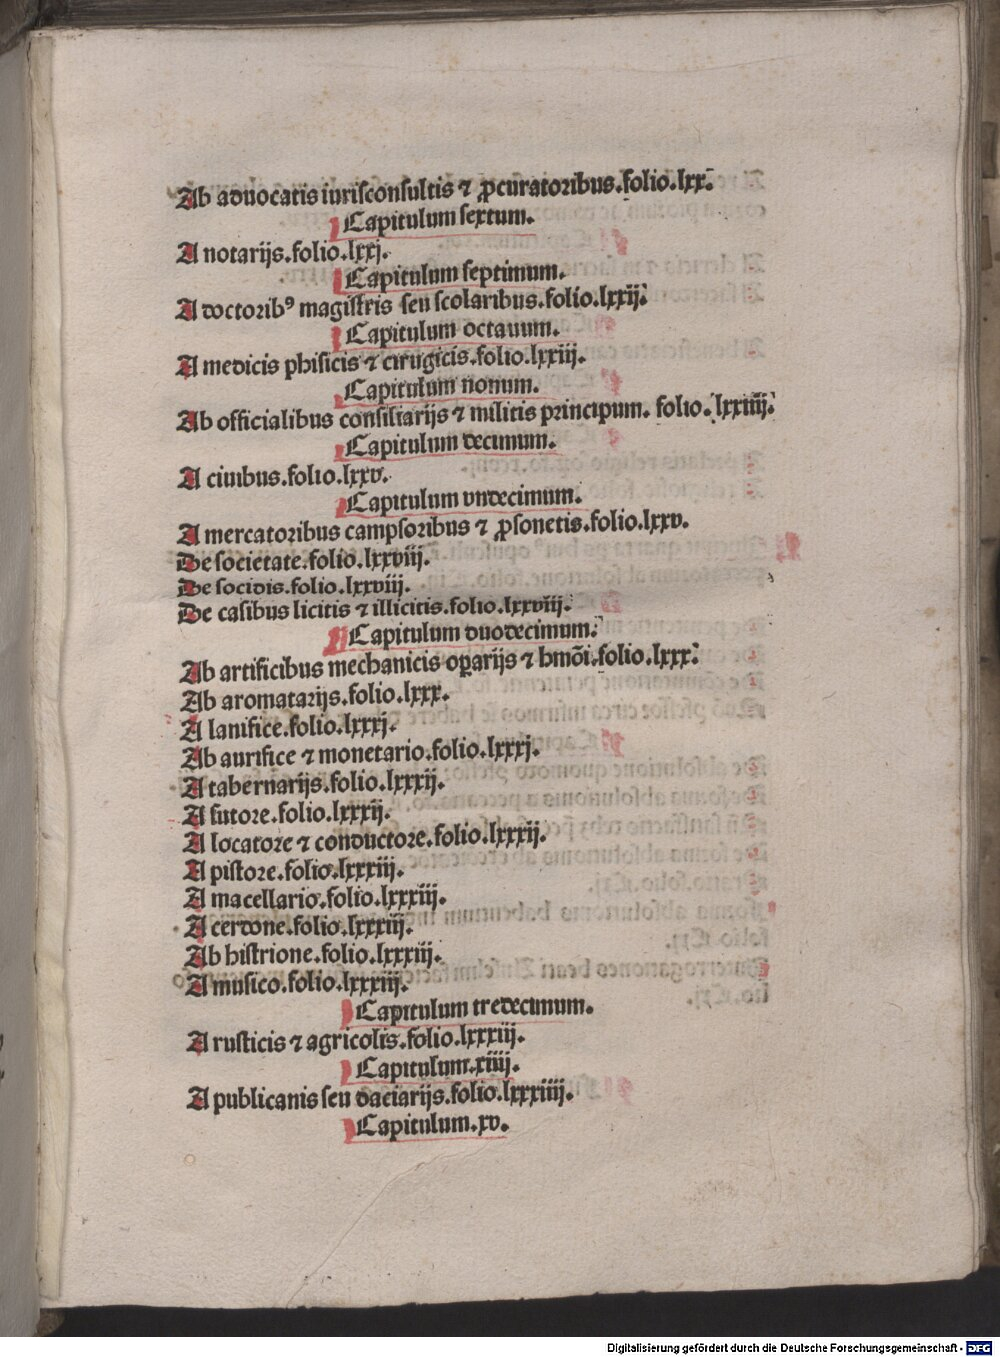 Ab aduocatis iurisconsultis ⁊ ꝓcuratoribus.folio.lxx.
Capitulum sextum.
A notarijs.folio.lxxj.
Capitulum septimum.
A doctoribꝰ magistris seu scolaribus.folio.lxxij.
Capitulum octauum.
A medicis phisicis ⁊ cirugicis.folio.lxxiij.
Capitulum nonum.
Ab officialibus consiliarijs ⁊ militis principum. folio.lxxiiij.
Capitulum decimum.
A ciuibus.folio.lxxv.
Capitulum vndecimum.
A mercatoribus campsoribus ⁊ ꝓsonetis.folio.lxxv.
De societate.folio.lxxviij.
De socidis.folio.lxxviij.
De casibus licitis ⁊ illicitis.folio.lxxviij.
Capitulum duodecimum.
Ab artificibus mechanicis oꝑarijs ⁊ hmōi.folio.lxxx.
Ab aromatarijs.folio.lxxx.
A lanifice.folio.lxxxj.
Ab aurifice ⁊ monetario.folio.lxxxj.
A tabernarijs.folio.lxxxij.
A sutore.folio.lxxxij.
A locatore ⁊ conductore.folio.lxxxij.
A pistore.folio.lxxxiij.
A macellario.folio.lxxxiij.
A cerdone.folio.lxxxiij.
Ab histrione.folio.lxxxiij.
A musico.folio.lxxxiij.
Capitulum tredecimum.
A rusticis ⁊ agricolis.folio.lxxxiij.
Capitulum.xiiij.
A publicanis seu daciarijs.folio.lxxxiiij.
Capitulum.xv.
Digitalisierung gefördert durch die Deutsche Forschungsgemeinschaft - DFG